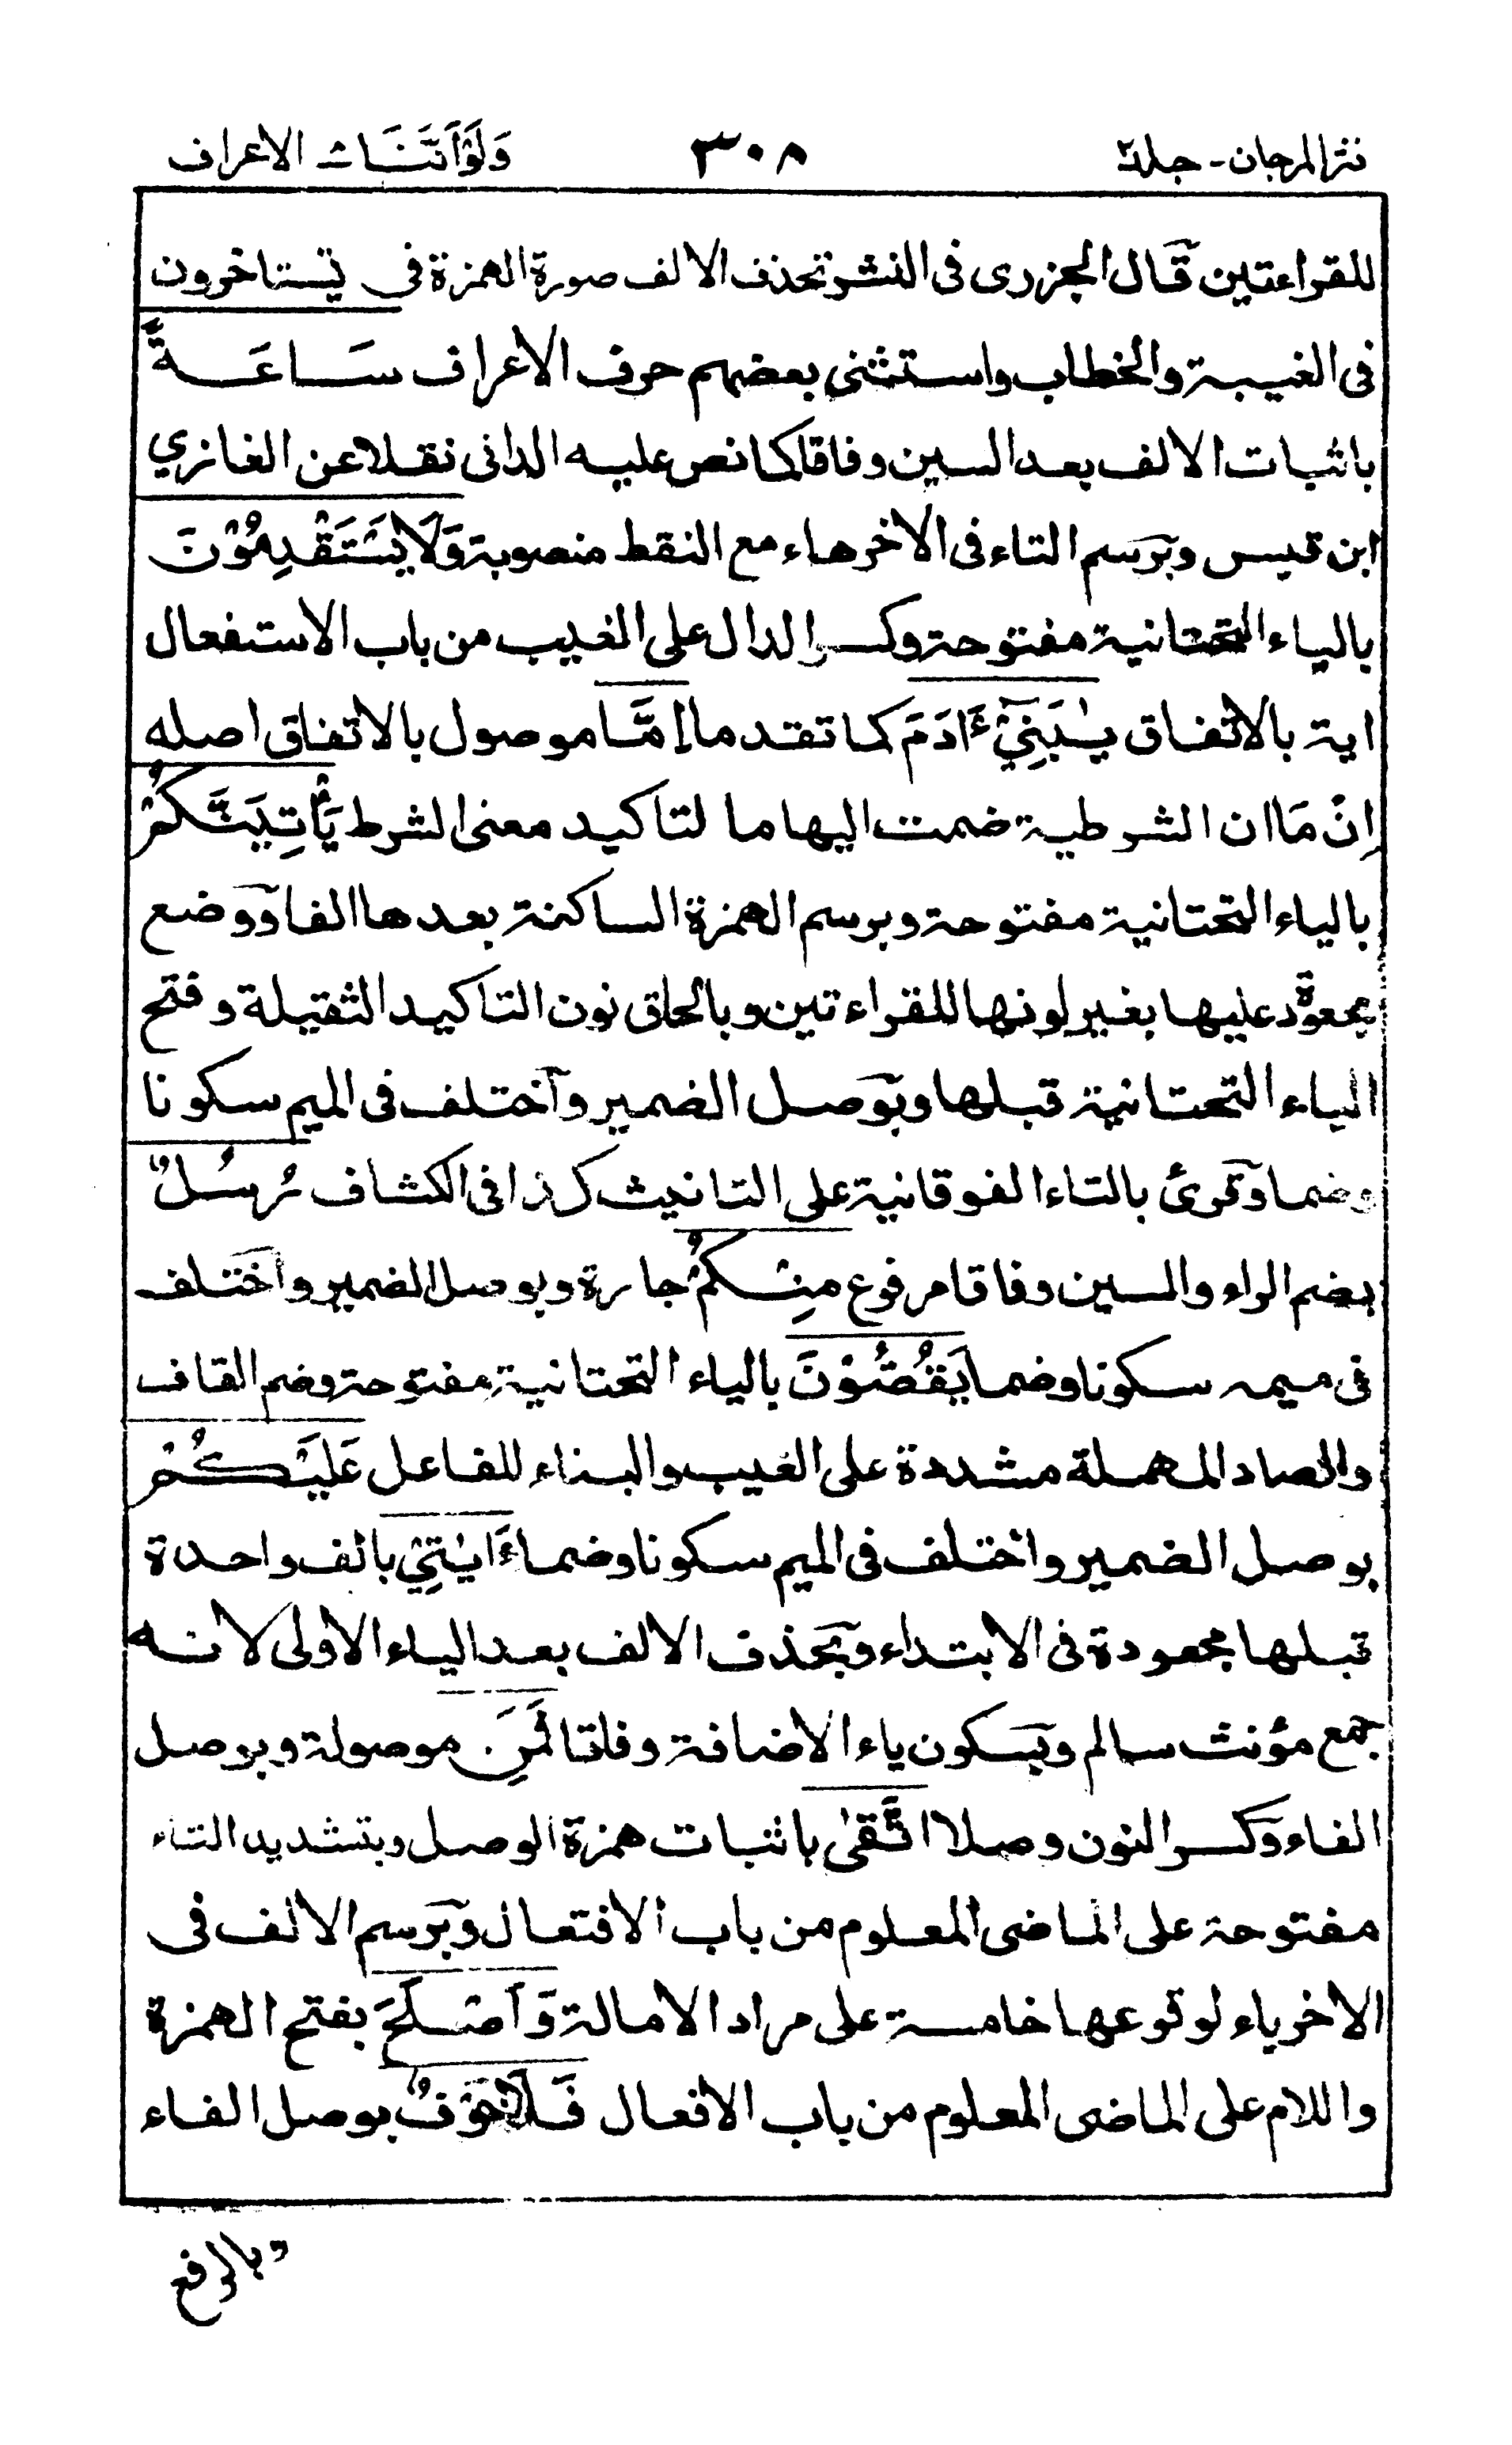 نثر المرجان - جلد ٢ ٣٠٨ وَلَوْ اَنَّنَا ـ الاعراف
للقراءتين قال الجزرى فى النشر تحذف الالف صورة الهمزة فى يستاخرون
فى الغيبة والخطاب واستثنى بعضهم حرف الاعراف سَاعَةً
باثبات الالف بعد السين وفاقا كما نص عليه الدانى نقلا عن الغازي
ابن قيس وبرسم التاء فى الاخر هاء مع النقط منصوبة وَلَا يَسْتَقْدِمُوْنَ
بالياء التحتانية مفتوحة وكسر الدال على الغيب من باب الاستفعال
اية بالاتفاق يٰبَنِيْٓ ءَادَمَ كما تقدم اِمَّا موصول بالاتفاق اصله
اِنْ مَا ان الشرطية ضمت اليها ما لتاكيد معنى الشرط يَأْتِيَنَّكُمْ
بالياء التحتانية مفتوحة وبرسم الهمزة الساكنة بعدها الفا ووضع
مجعودة عليها بغير لونها للقراءتين وبالحاق نون التاكيد الثقيلة وفتح
الياء التحتانية قبلها وبوصل الضمير واختلف فى الميم سكونا
وضما وقرئ بالتاء الفوقانية على التانيث كذا فى الكشاف رُسُلٌ
بضم الراء والسين وفاقا مرفوع مِنْكُمْ جارة وبوصل الضمير واختلف
فى ميمه سكونا وضما يَقُصُّوْنَ بالياء التحتانية مفتوحة وضم القاف
والصاد المهملة مشددة على الغيب والبناء للفاعل عَلَيْكُمْ
بوصل الضمير واختلف فى الميم سكونا وضما ءَايٰتِيْ بالف واحدة
قبلها مجعودة فى الابتداء وبحذف الالف بعد الياء الاولى لانه
جمع مؤنث سالم وبسكون ياء الاضافة وفاقا فَمَنِ موصولة وبوصل
الفاء وكسر النون وصلا اتَّقٰى باثبات همزة الوصل وبتشديد التاء
مفتوحة على الماضى المعلوم من باب الافتعال وبرسم الالف فى
الاخر ياء لوقوعها خامسة على مراد الامالة وَاَصْلَحَ بفتح الهمزة
واللام على الماضى المعلوم من باب الافعال فَلَا خَوْفٌ بوصل الفاء
وبالرفع